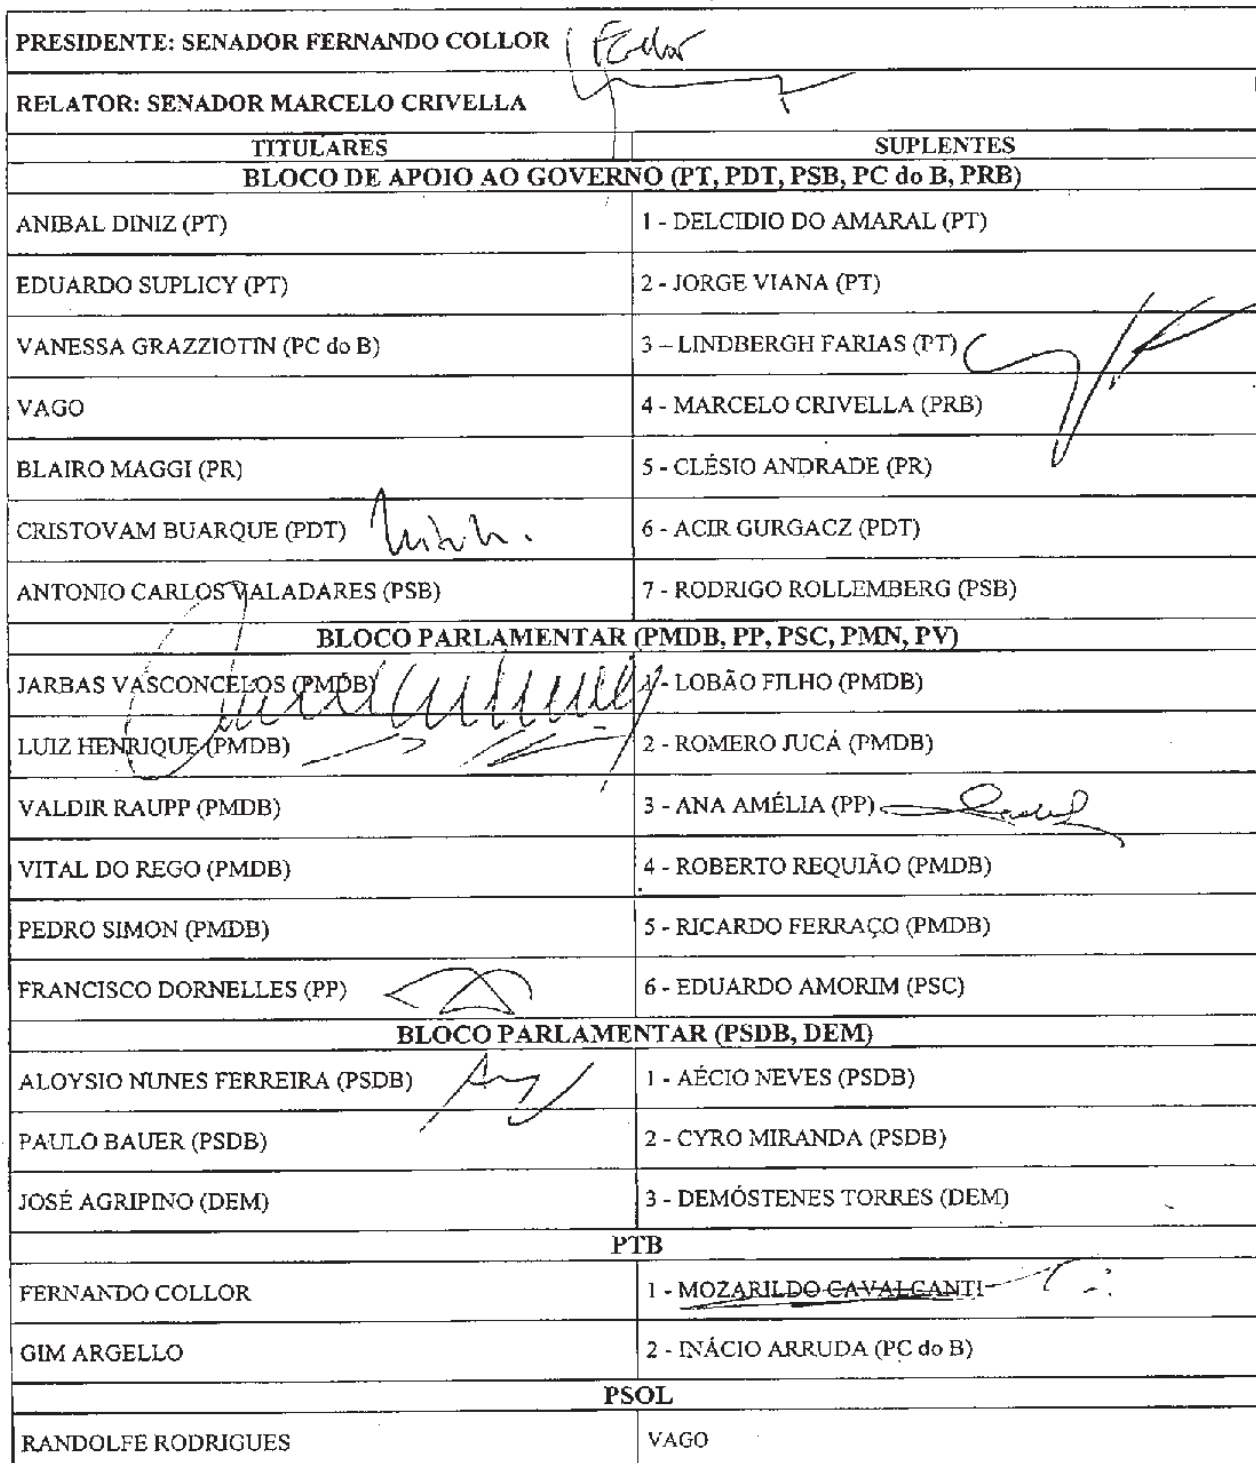 PRESIDENTE: SENADOR FERNANDO COLLOR
RELATOR: SENADOR MARCELO CRIVELLA
TITULARES SUPLENTES
BLOCO DE APOIO AO GOVERNO (PT, PDT, PSB, PC do B, PRB)
ANIBAL DINIZ (PT) 1 - DELCIDIO DO AMARAL (PT)
EDUARDO SUPLICY (PT) 2 - JORGE VIANA (PT)
VANESSA GRAZZIOTIN (PC do B) 3 – LINDBERGH FARIAS (PT)
VAGO 4 - MARCELO CRIVELLA (PRB)
BLAIRO MAGGI (PR) 5 - CLÉSIO ANDRADE (PR)
CRISTOVAM BUARQUE (PDT) 6 - ACIR GURGACZ (PDT)
ANTONIO CARLOS VALADARES (PSB) 7 - RODRIGO ROLLEMBERG (PSB)
BLOCO PARLAMENTAR (PMDB, PP, PSC, PMN, PV)
JARBAS VASCONCELOS (PMDB) 1 - LOBÃO FILHO (PMDB)
LUIZ HENRIQUE (PMDB) 2 - ROMERO JUCÁ (PMDB)
VALDIR RAUPP (PMDB) 3 - ANA AMÉLIA (PP)
VITAL DO REGO (PMDB) 4 - ROBERTO REQUIÃO (PMDB)
PEDRO SIMON (PMDB) 5 - RICARDO FERRAÇO (PMDB)
FRANCISCO DORNELLES (PP) 6 - EDUARDO AMORIM (PSC)
BLOCO PARLAMENTAR (PSDB, DEM)
ALOYSIO NUNES FERREIRA (PSDB) 1 - AÉCIO NEVES (PSDB)
PAULO BAUER (PSDB) 2 - CYRO MIRANDA (PSDB)
JOSÉ AGRIPINO (DEM) 3 - DEMÓSTENES TORRES (DEM)
PTB
FERNANDO COLLOR 1 - MOZARILDO CAVALCANTI
GIM ARGELLO 2 - INÁCIO ARRUDA (PC do B)
PSOL
RANDOLFE RODRIGUES VAGO